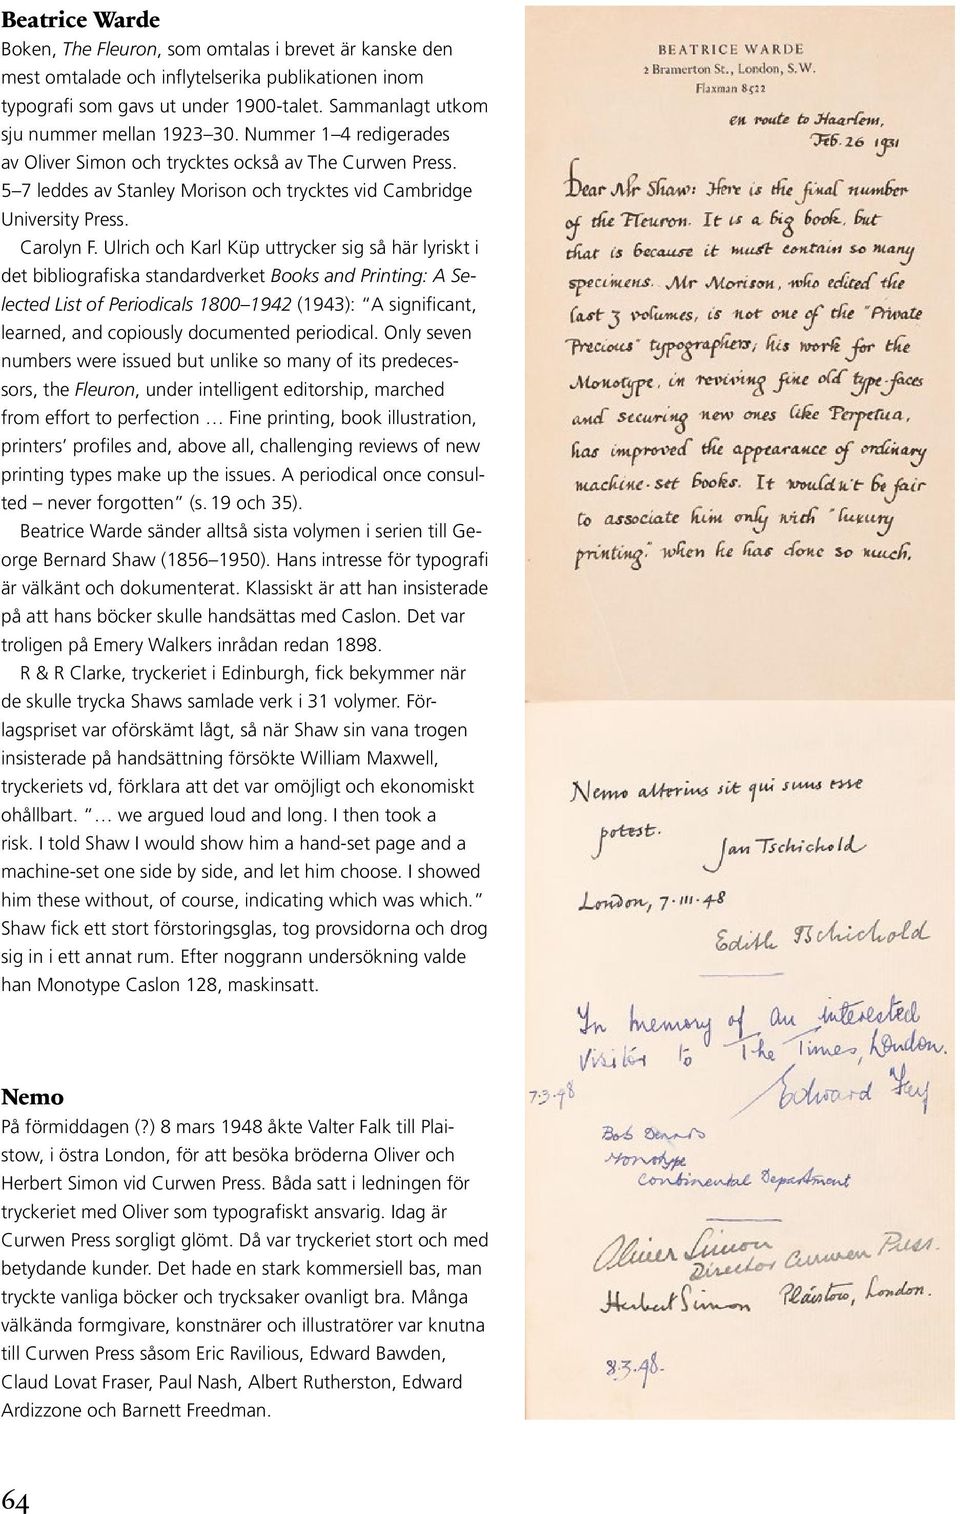 Beatrice Warde
Boken, The Fleuron, som omtalas i brevet är kanske den
mest omtalade och inflytelserika publikationen inom
typografi som gavs ut under 1900-talet. Sammanlagt utkom
sju nummer mellan 1923–30. Nummer 1–4 redigerades
av Oliver Simon och trycktes också av The Curwen Press.
5–7 leddes av Stanley Morison och trycktes vid Cambridge
University Press.
Carolyn F. Ulrich och Karl Küp uttrycker sig så här lyriskt i
det bibliografiska standardverket Books and Printing: A Se-
lected List of Periodicals 1800–1942 (1943): ”A significant,
learned, and copiously documented periodical. Only seven
numbers were issued but unlike so many of its predeces-
sors, the Fleuron, under intelligent editorship, marched
from effort to perfection … Fine printing, book illustration,
printers’ profiles and, above all, challenging reviews of new
printing types make up the issues. A periodical once consul-
ted – never forgotten” (s. 19 och 35).
Beatrice Warde sänder alltså sista volymen i serien till Ge-
orge Bernard Shaw (1856–1950). Hans intresse för typografi
är välkänt och dokumenterat. Klassiskt är att han insisterade
på att hans böcker skulle handsättas med Caslon. Det var
troligen på Emery Walkers inrådan redan 1898.
R & R Clarke, tryckeriet i Edinburgh, fick bekymmer när
de skulle trycka Shaws samlade verk i 31 volymer. För-
lagspriset var oförskämt lågt, så när Shaw sin vana trogen
insisterade på handsättning försökte William Maxwell,
tryckeriets vd, förklara att det var omöjligt och ekonomiskt
ohållbart. ”… we argued loud and long. I then took a
risk. I told Shaw I would show him a hand-set page and a
machine-set one side by side, and let him choose. I showed
him these without, of course, indicating which was which.”
Shaw fick ett stort förstoringsglas, tog provsidorna och drog
sig in i ett annat rum. Efter noggrann undersökning valde
han Monotype Caslon 128, maskinsatt.
Nemo
På förmiddagen (?) 8 mars 1948 åkte Valter Falk till Plai-
stow, i östra London, för att besöka bröderna Oliver och
Herbert Simon vid Curwen Press. Båda satt i ledningen för
tryckeriet med Oliver som typografiskt ansvarig. Idag är
Curwen Press sorgligt glömt. Då var tryckeriet stort och med
betydande kunder. Det hade en stark kommersiell bas, man
tryckte vanliga böcker och trycksaker ovanligt bra. Många
välkända formgivare, konstnärer och illustratörer var knutna
till Curwen Press såsom Eric Ravilious, Edward Bawden,
Claud Lovat Fraser, Paul Nash, Albert Rutherston, Edward
Ardizzone och Barnett Freedman.
64
BEATRICE WARDE
2 Bramerton St., London, S.W.
Flaxman 8522
en route to Haarlem,
Feb. 26 1931
Dear Mr Shaw: Here is the final number
of the Fleuron. It is a big book, but
that is because it must contain so many
specimens. Mr Morison, who edited the
last 3 volumes, is not one of the "Private
Precious" typographers; his work for the
Monotype, in reviving fine old type-faces
and securing new ones like Perpetua,
has improved the appearance of ordinary
machine-set books. It wouldn't be fair
to associate him only with "luxury
printing," when he has done so much.
Nemo alterius sit qui suus esse
potest.
Jan Tschichold
London, 7·III·48
Edith Tschichold
In memory of an interested
visitor to The Times, London.
7·3·48 Edward
Bob Dennis
Monotype
Continental Department
Oliver Simon
Director Curwen Press.
Herbert Simon Plaistow, London.
8.3.48.